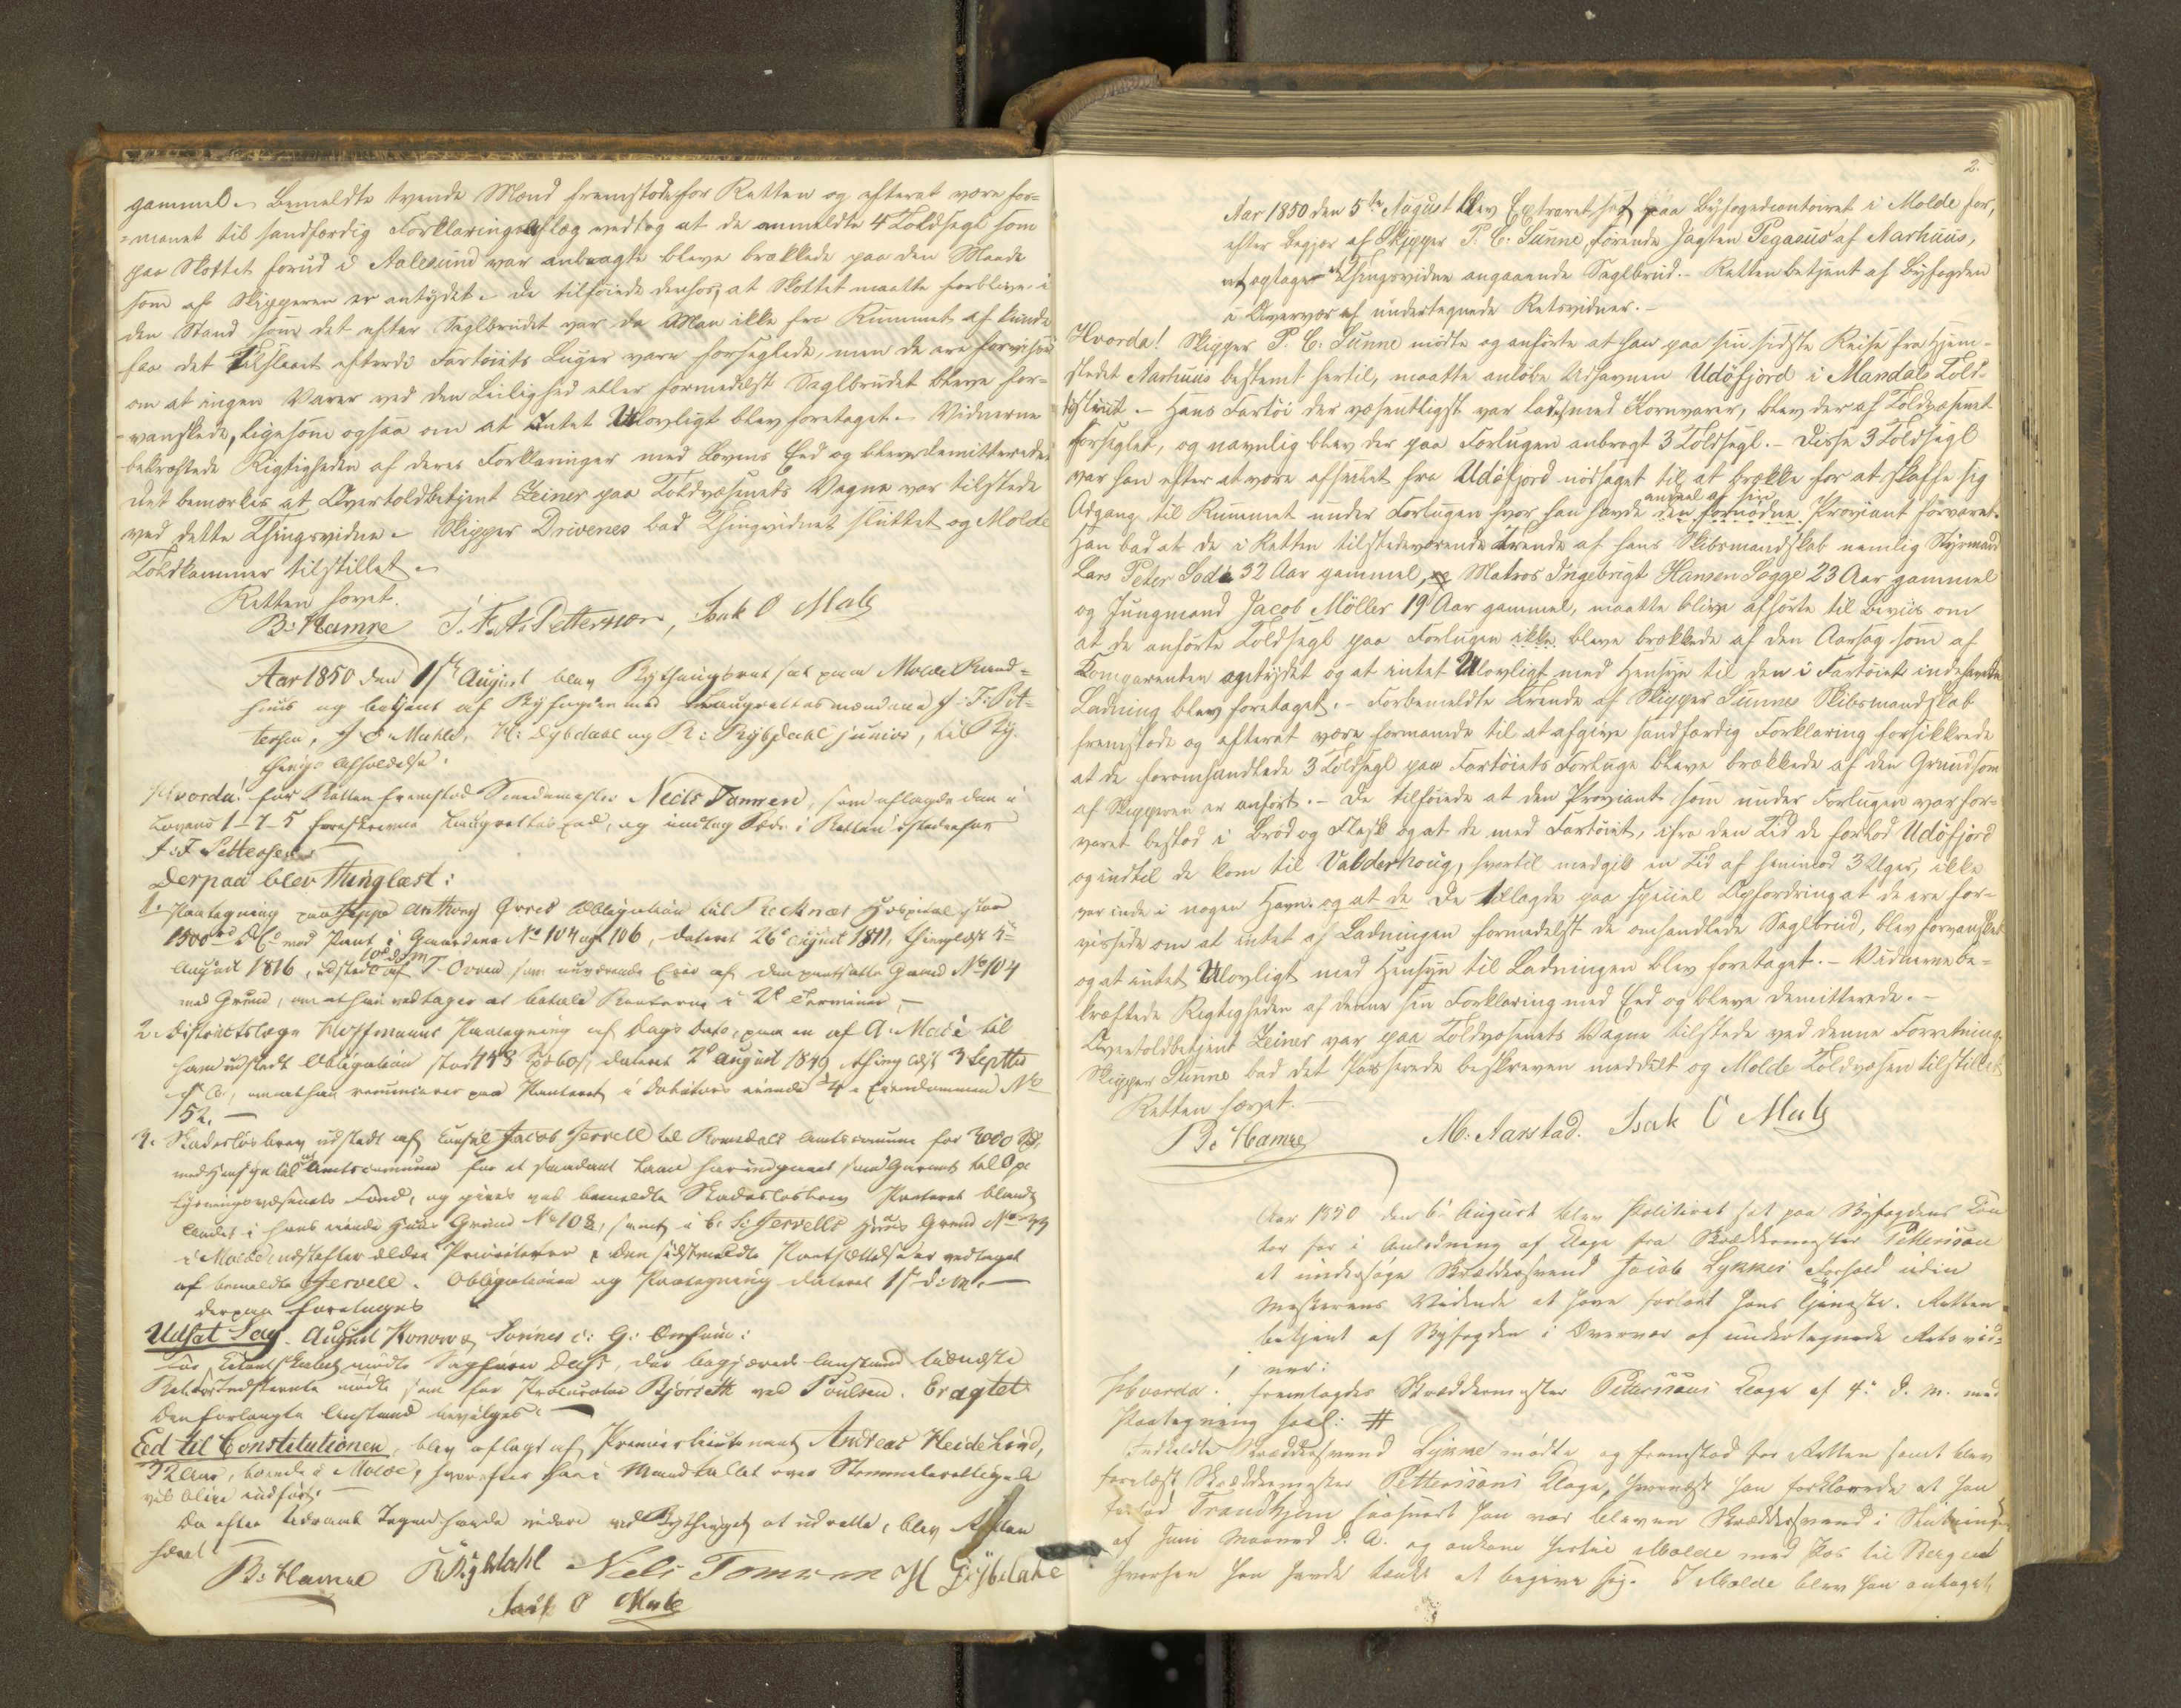 gammel. Bemeldte tvende Mænd fremstode for Retten og efterat være for=
=manet til sandfærdig Forklarings Aflæg vedtog at de anmeldte 4 Toldsegl som
paa Skottet forud i Aalesund var anbragte bleve brækkede paa den Maade
som af Skipperen er antydet. De tilføiede derhos, at Skottet maatte forblive i
den Stand som det efter Seglbrudet var da Man ikke fra Rummet af kunde
faa det tilslaaet efterdi Fartøiets Luger vare forseglede, men de ere forvissede
om at ingen Varer ved den Leilighed eller formedelst Seglbrudet bleve for=
=vanskede, ligesom ogsaa om at Intet Ulovligt blev foretaget. Vidnerne
bekræftede Rigtigheden af deres Forklaringer med Lovens Eed og bleve demitterede.
Det bemærkes at Overtoldbetjent Zeiner paa Toldvæsenets Vegne var tilstede
ved dette Thingsvidne. Skipper Drivenes bad Thingsvidnet sluttet og Molde
Toldkammer tilstillet.
Retten hævet.
B: Hamre J. F. A. Petterson, Isak O Male
Aar 1850 den 1ste August blev Bythingsret sat paa Molde Raad=
huus og betjent af Byfogden med Laugrettesmændene J. F. Pet=
tersen, I. O. Mahle, H: Dybdahl og R: Rybdahl junior, til By=
things Afholdelse.
Hvorda! For Retten fremstod Smedemester Neils Tomren, som aflagde den i
Lovens 1-7-5 foreskrevne Laugrettes Eed, og indtog Sæde i Retten istedenfor
J: F Pettersen.
Derpaa blev Thinglæst:
1. Paategning paa Jeppe Anthony Owres Obligation til Reknæs Hospital stor
1500 rd D.C. med Pant i Gaardene No 104 og 106, dateret 26de August 1811, thinglæst 5te
August 1816, udstedt 10de d. M. af T. Owren som nuværende Eier af den pantsatte Gaard No 104
med Grund, om at han vedtager at betale Renterne i 2de Terminer,—
2. Districtslæge Hoffmanns Paategning af Dags Dato, paa en af A. Mace til
ham udstedt Obligation stor 448 Spd 60 s, dateret 2de August 1849, thinglæst 3 Septbr
s. A., om at han renuncerer paa Panteret i Debitors eiende 1/4 i Eiendommen No
152.—
3. Skadesløsbrev udstedt af Consul Jacob Jervell til Romsdals Amtscomune for 3000 Spd,
med Hensyn til at Amtscomunen for et saadant Laan har indgaaet som Garant til Op=
lysningsvæsenets Fond, og gives ved bemeldte Skadesløsbrev Panteret blandt
Andet i hans eiende Huus Grund No 108, samt i C. S: Jervells Huus Grund No 79
i Molde næstefter ældre Prioriteter, den sidstmeldte Pantsættelse er vedtaget
af bemeldte Jervell. Obligationen og Paategning dateret 1ste d. M.—
Derpaa foretoges
Udsat Sag. August Konow & Sønner c: G:
For Citantskabet mødte Sagfører Dahl, der begjærede Anstand til næste
Ret. For Indstevnte mødte som for Procurator Bjørseth ved Poulsen. Eragtet
Den forlangte Anstand bevilges.
Eed til Constitutionen, blev aflagt af Premierlieutenant Andreas Heide Lind,
32 Aar, boende i Molde, hvorefter han i Mandtallet over Stemmeberettigede
vil blive indført.
Da efter Ingen havde videre ved Bythinget at udrette, blev Retten
hævet.
B: Hamre R Rybdahl Niels Tomren H Dybdahl
Isak O Male
2.
Aar 1850 den 5te August blev Extraret sat paa Byfogedcontoiret i Molde for,
efter Begjær af Skipper P. C. Sunne, førende Jagten Pegasus af Aarhuus,
at optage et Thingsvidne angaaende Seglbrud.— Retten betjent af Byfogden
i Overvær af undertegnede Retsvidner.—
Hvorda! Skipper P. C. Sunne mødte og anførte at han paa sin sidste Reise fra Hjem=
stedet Aarhuus bestemt hertil, maatte anløbe Udhavnen Udöfjord i Mandals Told=
distrikt.— Hans Fartøi der væsentligst var ladet med Kornvarer, blev der af Toldvæsenet
forseglet, og navnlig blev der paa Forlugen anbragt 3 Toldsegl.— Disse 3 Toldsegl
var han efter at være afseilet fra Udöfjord nødsaget til at brække for at skaffe sig
Adgang til Rummet under Forlugen hvor han havde endeel af sin den fornødne Proviant forvaret.
Han bad at de i Retten tilstedeværende trende af hans Skibsmandskab nemlig Styrmand
Lars Peter Sode 32 Aar gammel, og Matros Ingebrigt Hansen Sogge 23 Aar gammel
og Jungmand Jacob Möller 19 Aar gammel, maatte blive afhørte til Beviis om
at de anførte Toldsegl paa Forlugen ikke bleve brækkede af den Aarsag som af
Komparenten antydet og at intet Ulovligt med Hensyn til den i Fartøiet indehavende
Ladning blev foretaget.— Forbemeldte trende af Skipper Sunnes Skibsmandskab
fremstode og efterat være formanede til at afgive sandfærdig Forklaring forsikkrede
at de foromhandlede 3 Toldsegl paa Fartøiets Forluge bleve brækkede af den Grund som
af Skipperen er anført.— De tilføiede at den Proviant som under Forlugen var for=
varet bestod i Brød og Flesk og at de med Fartøiet, ifra den Tid de forlod Udöfjord
og indtil de kom til Valderhoug, hvortil medgik en Tid af henimod 3 Uger, ikke
var inde i nogen Havn. og at de De tillagde paa speciel Opfordring at de ere for=
vissede om at intet af Ladningen formedelst de omhandlede Seglbrud, blev forvansket
og at intet Ulovligt med Hensyn til Ladningen blev foretaget.— Vidnerne be=
kræftede Rigtigheden af denne sin Forklaring med Eed og bleve demitterede.—
Overtoldbetjent Zeiner var paa Toldvæsenets Vegne tilstede ved denne Forretning.
Skipper Sunne bad det Passerede beskreven meddelt og Molde Toldvæsen tilstillet
Retten hævet.—
B: Hamre M. Aarstad. Isak O Male
Aar 1850 den 6te August blev Politiret sat paa Byfogdens Con=
tor for i Anledning af Klage fra Skræddermester Petterson
at undersøge Skræddersvend Jacob Lykkes Forhold uden
Mesterens Vidende at have forladt hans Tjeneste. Retten
betjent af Byfogden i Overvær af undertegnede Retsvid=
ner:
Hvorda! fremlagdes Skræddermester Pettersons Klage af 4de d. M. med
Paategning saal: #
Indkaldte Skræddersvend Lykke mødte og fremstod for Retten samt blev
forelæst Skræddermester Pettersons Klage, hvornæst han forklarede at han
forlod Trondhjem saasnart han var bleven Skræddersvend i Slutningen
af Juni Maaned d. A. og ankom hertil Molde med Pas til Bergen
hvorhen han havde tænkt at begive sig. I Molde blev han antaget